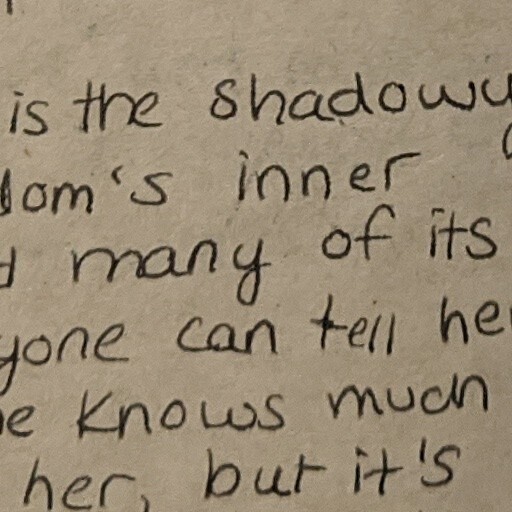 is the shadowy
dom's inner
many of its
yone can tell he
e knows much
her, but it's